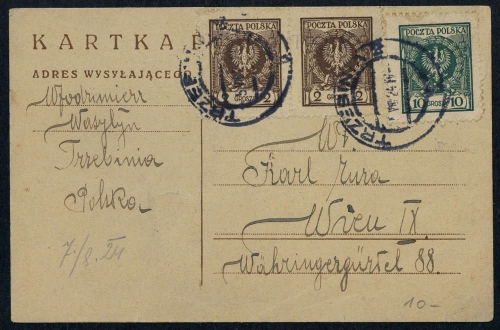 KARTKA P
ADRES WYSYŁAJĄCEGO
Włodzimierz
Wasylyn
Trzebinia
Polska
7/8. 24
POCZTA POLSKA
2 GROSZE 2
POCZTA POLSKA
2 GROSZE 2
POCZTA POLSKA
10 GROSZY 10
TRZEB
TRZEBINIA
W.
Karl Jura
Wien IX.
Währingergürtel 88.
10-